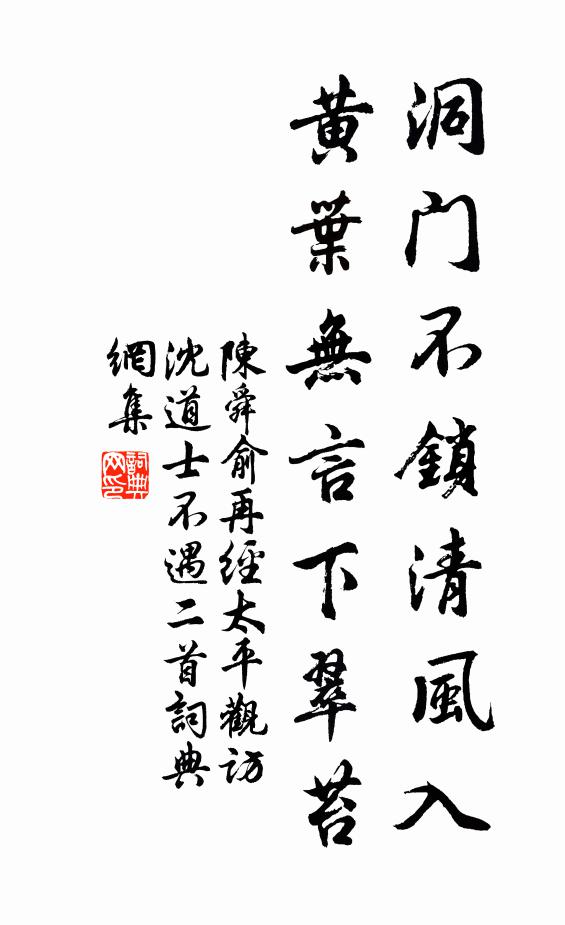 洞门不鎖清風入
黄葉無言下翠苔
陳舜俞再經太平觀訪
沈道士不遇二首詞典
網集
詞典
网印